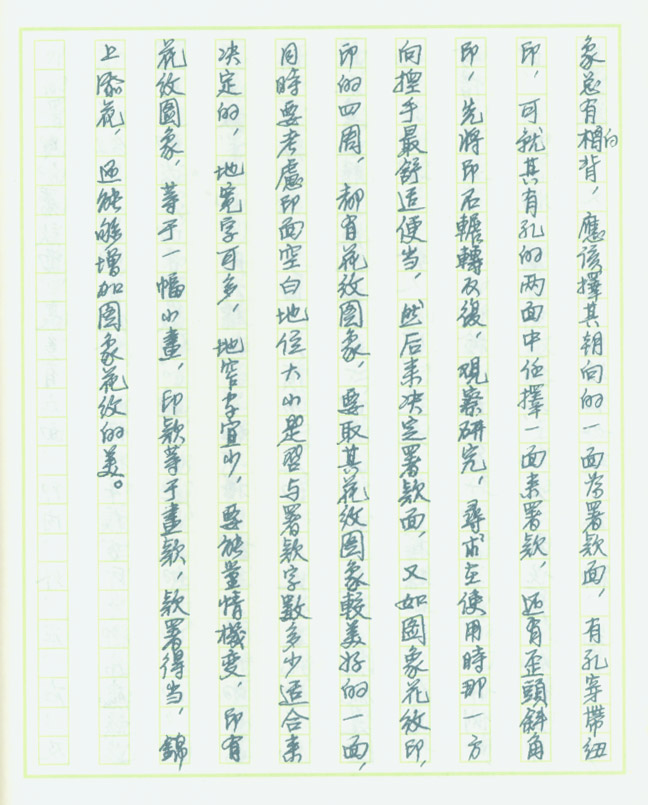 象总有相的背，應该擇其朝向的一面為署款面，有孔穿帶纽
印，可就其有孔的两面中任擇一面来署款，还有歪頭斜角
印，先將印石輾轉反復，观察研究，尋求在使用時那一方
向握手最舒适便当，然后来决定署款面，又如图象花纹印，
印的四周，都有花纹图象，要取其花纹图象較美好的一面，
同時要考慮印面空白地位大小是否与署款字數多少适合来
决定的，地宽字可多，地窄字宜少，要能量情機变，印有
花纹圖象，等于一幅小畫，印款等于畫款，款署得当，錦
上添花，还能够增加图象花纹的美。